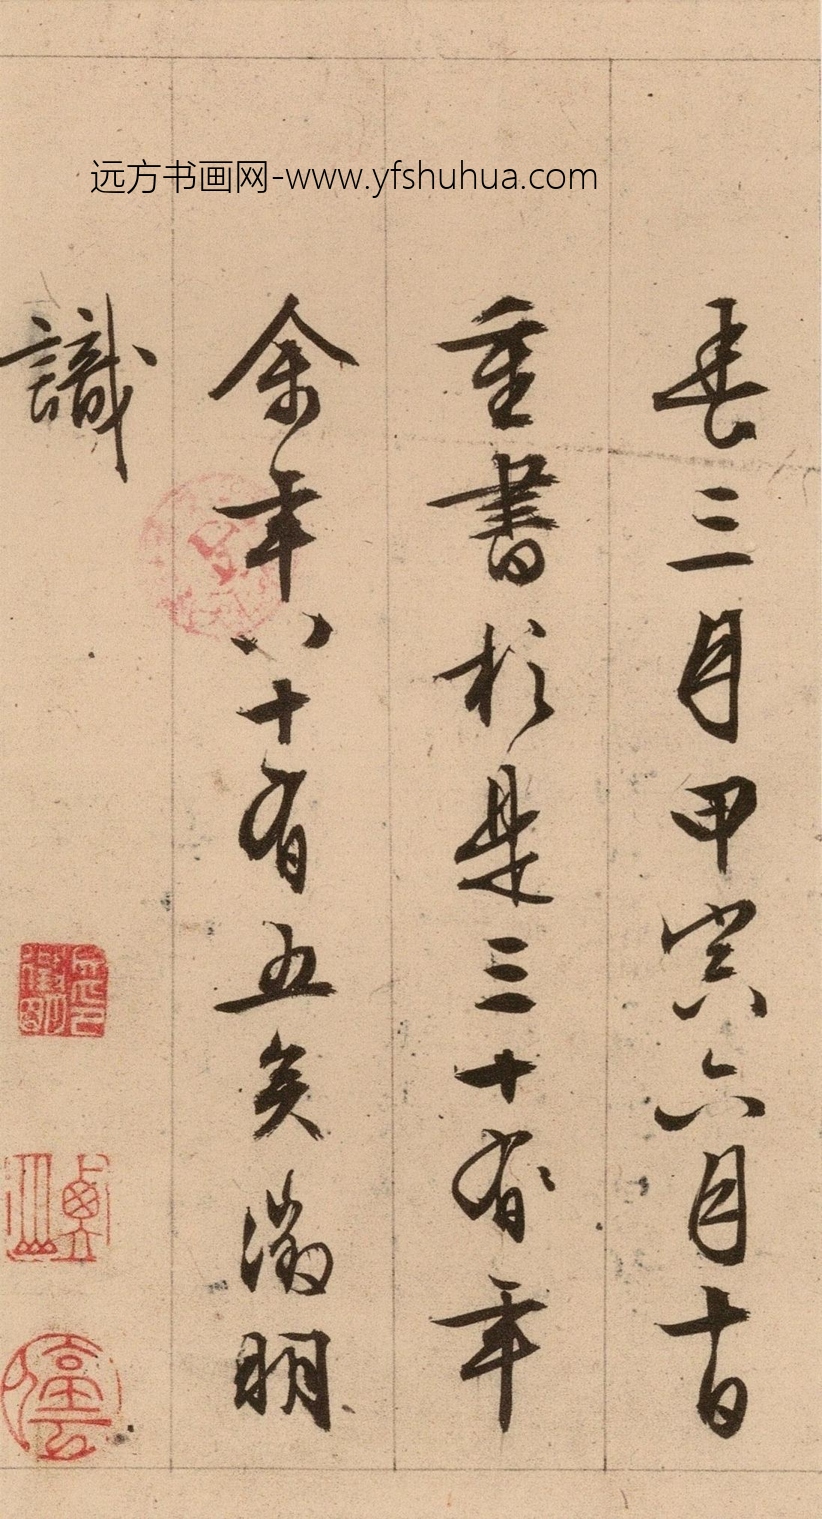 远方书画网-www.yfshuhua.com
春三月甲寅六月十日
重書於是三十有年
余年八十有五矣徵明
識
衡山
停雲